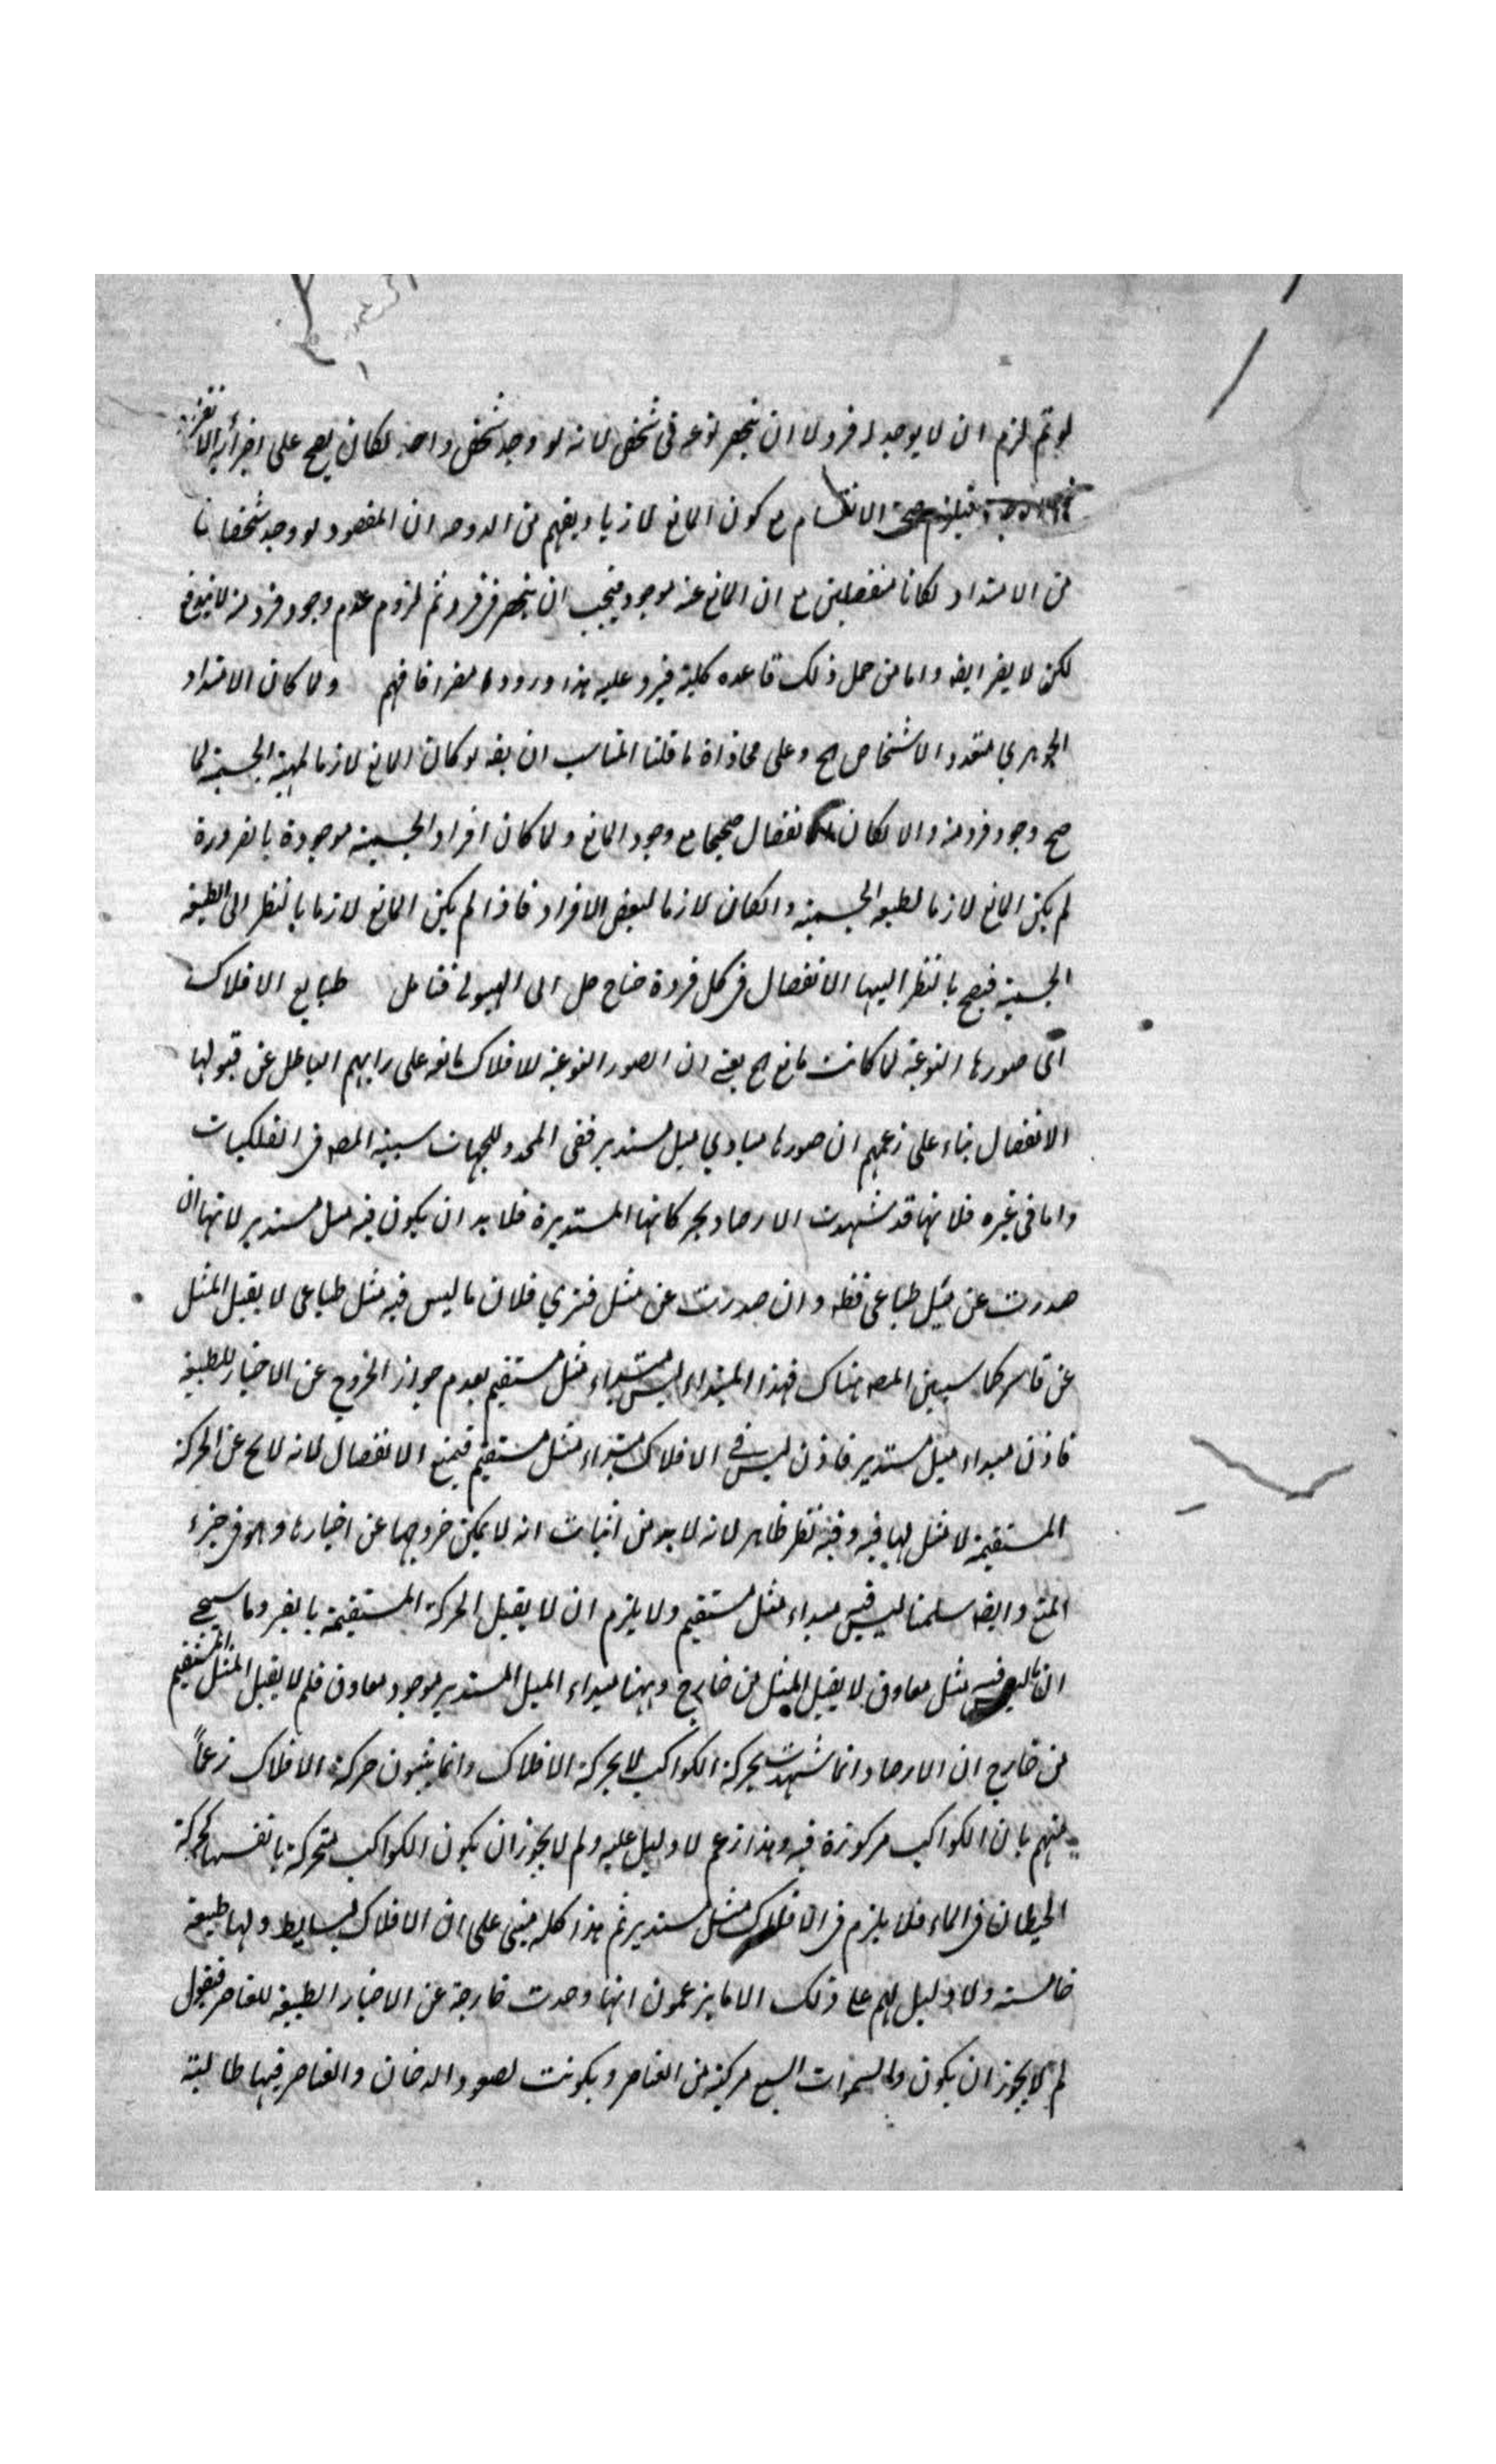 لو تم لزم ان لا يوجد له فرد لا ان ينحصر نوعه فى شخص لانه لو وجد شخص واحد لكان يصح على اجزائه
فيلزم صحة الانقسام مع كون المانع لازما ويفهم من ان المقصود لو وجد شخصان
من الامتداد لكانا منفصلين مع ان المانع عنه موجود فيجب ان ينحصر فى فرد ثم لزوم عدم وجود فرد منه
لكن لا يضر ايضه واما من حمل ذلك قاعده كلية فيرد عليه هذا ورودا فافهم ولما كان الامتداد
الجوهري متعدد الاشخاص اه وعلى محاذاة ما قلنا المناسب ان يقه لو كان المانع لازما لمهية الجسمية لما
صح وجود فرد منه والا لكان الانفصال صحيحا مع وجود المانع ولما كان افراد الجسمية موجودة بالضرورة
لم يكن المانع لازما لطبيعه الجسمية وانكان لازما لبعض الافراد فاذا لم يكن المانع لازما بالنظر الى الطبيعة
الجسمية فيصح بالنظر اليها الانفصال فى كل فرد الى الهيولى فتامل طبايع الافلاك
اى صورها النوعية لما كانت مانع اه يعنے ان الصور النوعية للافلاك مانعه على رايهم الباطل عن قبولها
الانفصال بناء على زعمهم ان صورها مبادي ميل مستدير ففى المحدد للجهات سيبينه المصه فى الفلكيات
واما فى غيره فلانها قد شهدت الارصاد بحركاتها المستديرة فلا بد ان يكون فيه ميل مستدير لانها ان
صدرت عن ميل طباعى فظه وان صدرت عن ميل قسري فلان ما ليس فيه ميل طباعى لا يقبل الميل
عن قاسر كما سيبين المصه هناك فهذا المبداء ليس مبداء ميل مستقيم لعدم جواز الخروج عن الاحياز الطبيعة
فاذن مبداء ميل مستدير فاذن ليس فے الافلاك مبداء ميل مستقيم فيمنع الانفصال لانه لا يخ عن الحركة
المستقيمة لا ميل لها فيه وفيه نظر ظاهر لانه لا بد من اثبات انه لا يمكن خروجها عن احيازها وهو فى حيز
المنع وايضه سلمنا ليس فيه مبداء ميل مستقيم ولا يلزم ان لا يقبل الحركة المستقيمة بالقسر وما سيجے
ان ما ليس فيه ميل معاوق لا يقبل الميل من خارج وههنا مبداء الميل المستدير موجود معاوق فلم لا يقبل الميل المستقيم
من خارج ان الارصاد انما شهدت بحركة الكواكب لا بحركة الافلاك وانما يثبتون حركة الافلاك زعماً
منهم بان الكواكب مركوزة فيه وهذا زعم لا دليل عليه ولم لا يجوز ان يكون الكواكب متحركة بانفسها كحركة
الحيطان فى الماء فلا يلزم فى الافلاك ميل مستدير ثم هذا كله مبنى على ان الافلاك بسايط ولها طبيعة
خامسة ولا دليل لهم على ذلك الا ما يزعمون انها وجدت خارجة عن الاحياز الطبيعة للعناصر فنقول
لم لا يجوز ان يكون السموات السبع مركبة من العناصر ويكونت لصعود الدخان والعناصر فيها طالبته